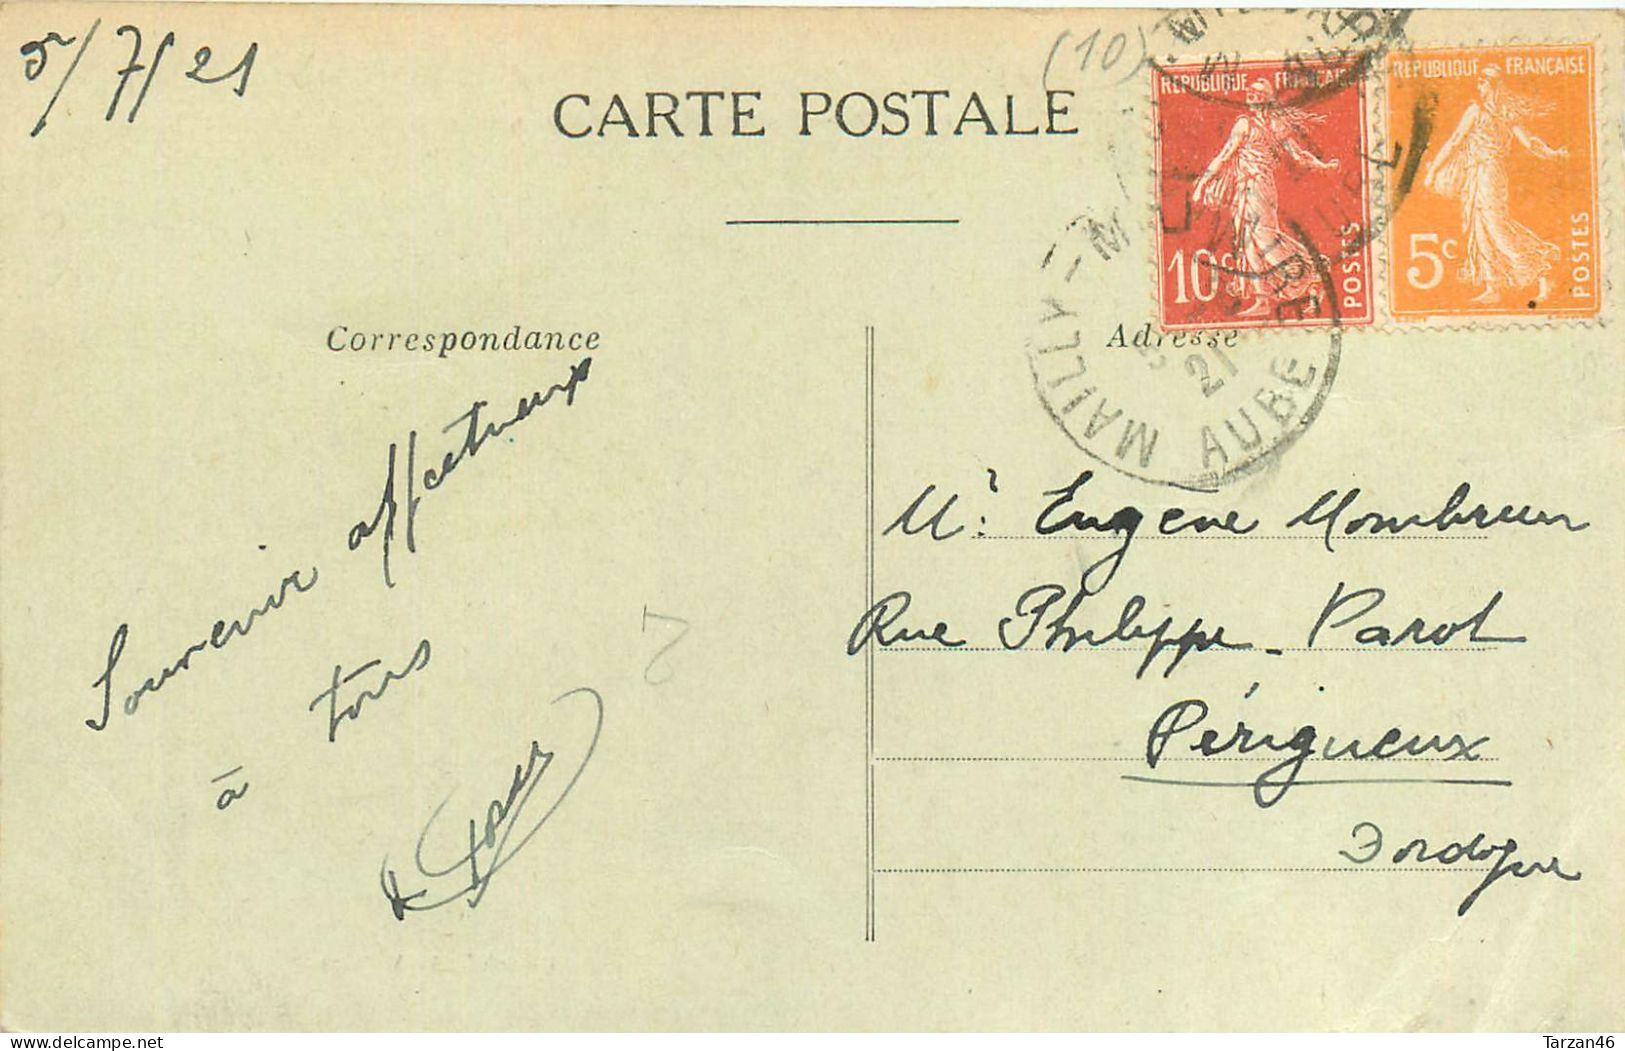 5/7/21
(10)
CARTE POSTALE
REPUBLIQUE FRANÇAISE
10c POSTES
REPUBLIQUE FRANÇAISE
5c POSTES
MAILLY-MILITAIRE
21
AUBE
Correspondance
Adresse
Souvenir affectueux
à tous
Mr Eugène Mombrun
Rue Philippe-Parot
Périgueux
Dordogne
Tarzan46